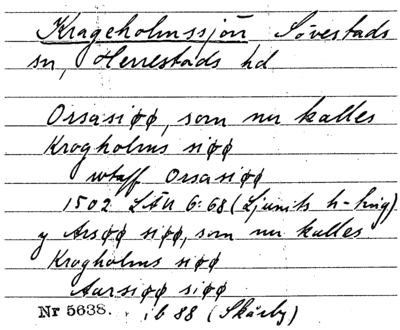 Krageholmssjön Sövestads
sn, Herrestads hd
Orsasiøø, som nu kalles
Krogholms siøø
wtaff Orsasiøø
1502 LÅU 6:68 (Ljunits h-ting)
y Arsøø siøø, som nu kalles
Krogholms siøø
Aarsiøø siøø
Nr 5638. ib 88 (Skårby)